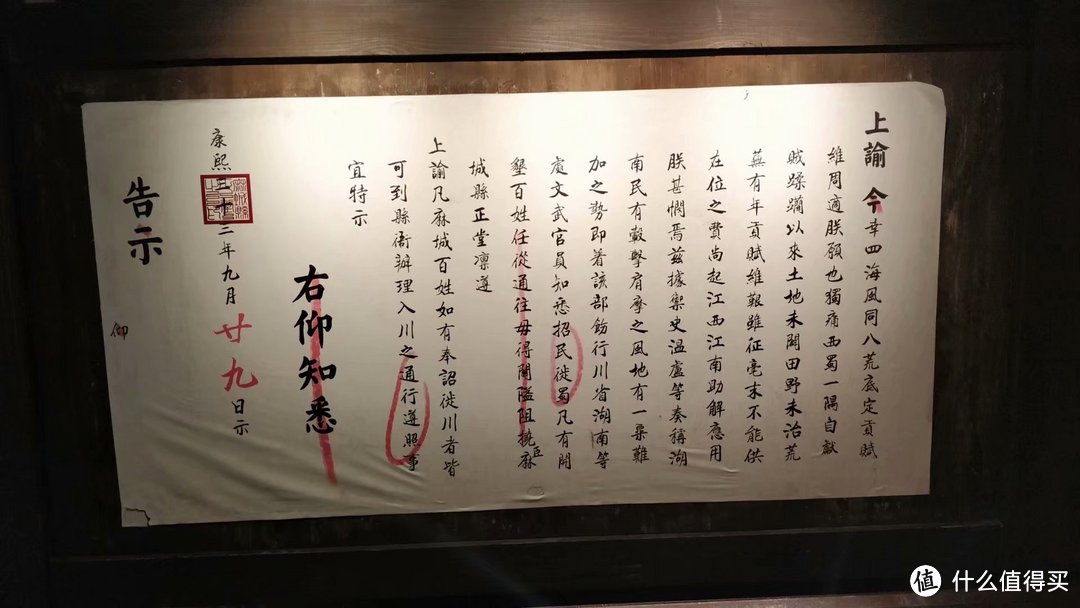 上諭 今幸四海風同八荒底定貢賦
維周適朕願也獨痛西蜀一隅自獻
賊蹂躪以來土地未闢田野未治荒
蕪有年貢賦維艱雖征毫末不能供
在位之費尚起江西江南助解應用
朕甚憫焉茲據禦史溫盧等奏稱湖
南民有轂擊肩摩之風地有一粟難
加之勢即著該部飭行川省湖南等
處文武官員知悉招民徙蜀凡有開
墾百姓任從通往毋得關隘阻撓臣麻
城縣正堂凜遵
上諭凡麻城百姓如有奉詔徙川者皆
可到縣衙辦理入川之通行遵照事
宜特示
右仰知悉
康熙三十三年九月廿九日示
告示
仰
值 什么值得买